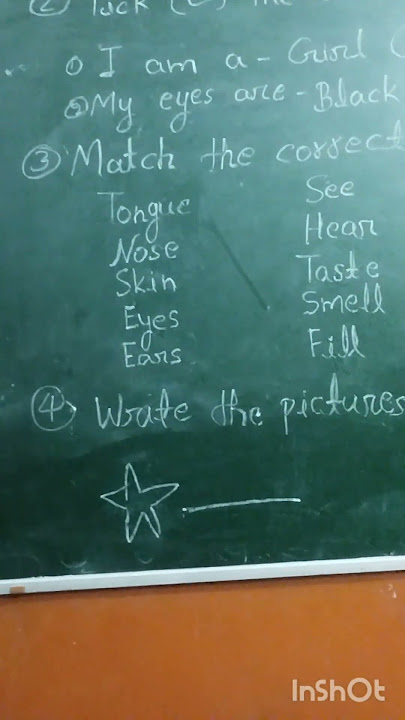 ② Tick ( ) the
① I am a - Gurl (
② My eyes are - Black
③ Match the correct
Tongue See
Nose Hear
Skin Taste
Eyes Smell
Ears Fill
④ Write the pictures
InShOt